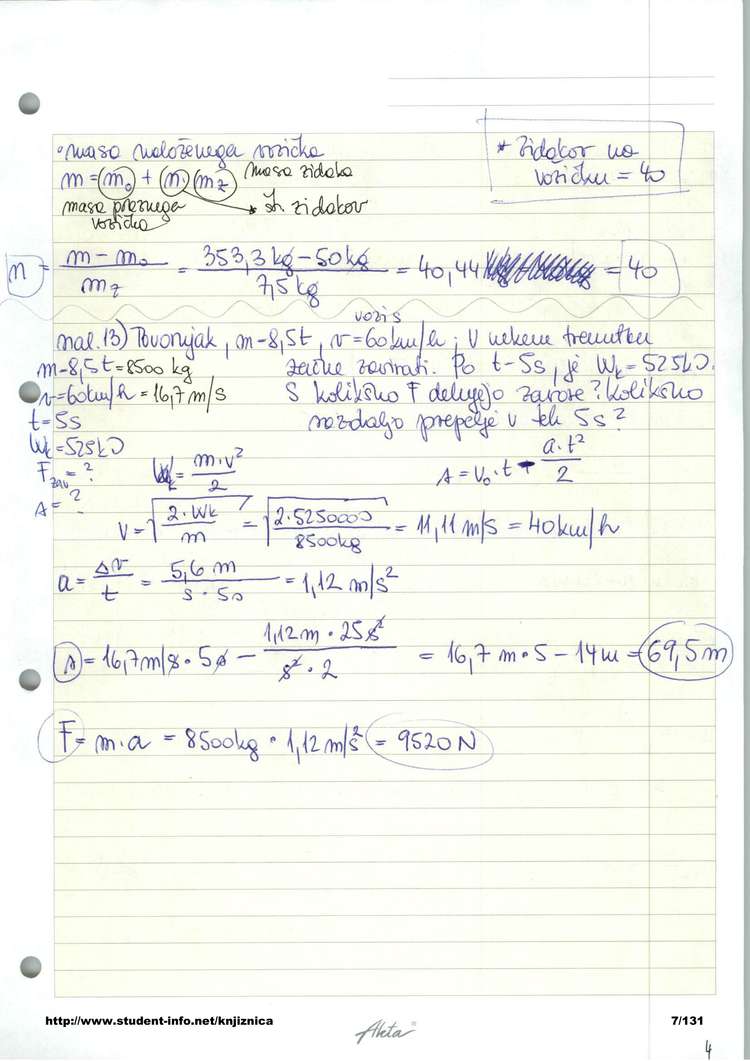 • masa naloženega vozička
m = m₀ + n · m_z masa zidaka
masa praznega vozička
* št. zidakov
* zidakov na
vozičku = 40
n = (m - m₀) / m_z = (353,3 kg - 50 kg) / 7,5 kg = 40,44 = 40
vozi s
nal. 13) Tovornjak, m - 8,5t, v = 60 km/h; V nekem trenutku
m - 8,5t = 8500 kg začne zavirati. Po t - 5s, je Wk = 525kJ.
v = 60 km/h = 16,7 m/s S kolikšno F delujejo zavore? Kolikšno
t = 5s razdaljo prepelje v teh 5s?
Wk = 525kJ
F zav = ? Wk = m · v² / 2 s = v₀ · t - a · t² / 2
s = ?
v = √(2 · Wk / m) = √(2 · 525000J / 8500kg) = 11,11 m/s = 40km/h
a = Δv / t = 5,6 m / s · 5s = 1,12 m/s²
s = 16,7m/s · 5s - 1,12m · 25s² / s² · 2 = 16,7 m · 5 - 14m = 69,5m
F = m · a = 8500kg · 1,12 m/s² = 9520N
http://www.student-info.net/knjiznica
Akta
7/131
4